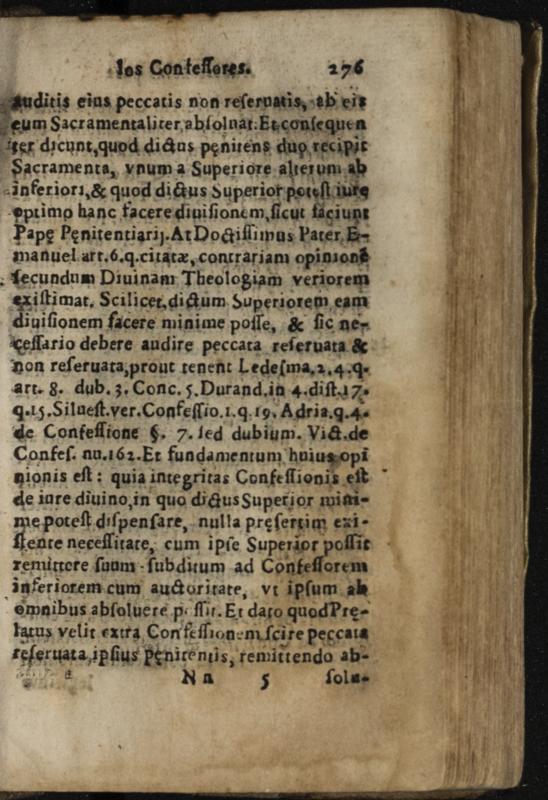 los Confeſſores. 276
auditis eius peccatis non reſeruatis, ab eis
eum Sacramentaliter abſoluat. Et conſequen
ter dicunt, quod dictus pęnitens duo recipit
Sacramenta, vnum a Superiore alterum ab
inferiori, & quod dictus Superior poteſt iure
optimo hanc facere diuiſionem, ſicut faciunt
Papę Pęnitentiarij. At Doctiſſimus Pater E-
manuel art. 6. q. citatæ, contrariam opinionē
ſecundum Diuinam Theologiam veriorem
exiſtimat. Scilicet, dictum Superiorem eam
diuiſionem facere minime poſſe, & ſic ne-
ceſſario debere audire peccata reſeruata &
non reſeruata, prout tenent Ledeſma. 2. 4. q.
art. 8. dub. 3. Conc. 5. Durand. in 4. diſt. 17.
q. 15. Silueſt. ver. Confeſſio. 1. q. 19. Adria. q. 4.
de Confeſſione §. 7. ſed dubium. Vict. de
Confeſ. nu. 162. Et fundamentum huius opi
nionis eſt: quia integritas Confeſſionis eſt
de iure diuino, in quo dictus Superior mini-
me poteſt diſpenſare, nulla pręſertim exi-
ſtente neceſſitate, cum ipſe Superior poſſit
remittere ſuum ſubditum ad Confeſſorem
inferiorem cum auctoritate, vt ipſum ab
omnibus abſoluere poſſit. Et dato quod Prę-
latus velit extra Confeſſionem ſcire peccata
reſeruata ipſius pęnitentis, remittendo ab-
N n 5 ſolu-